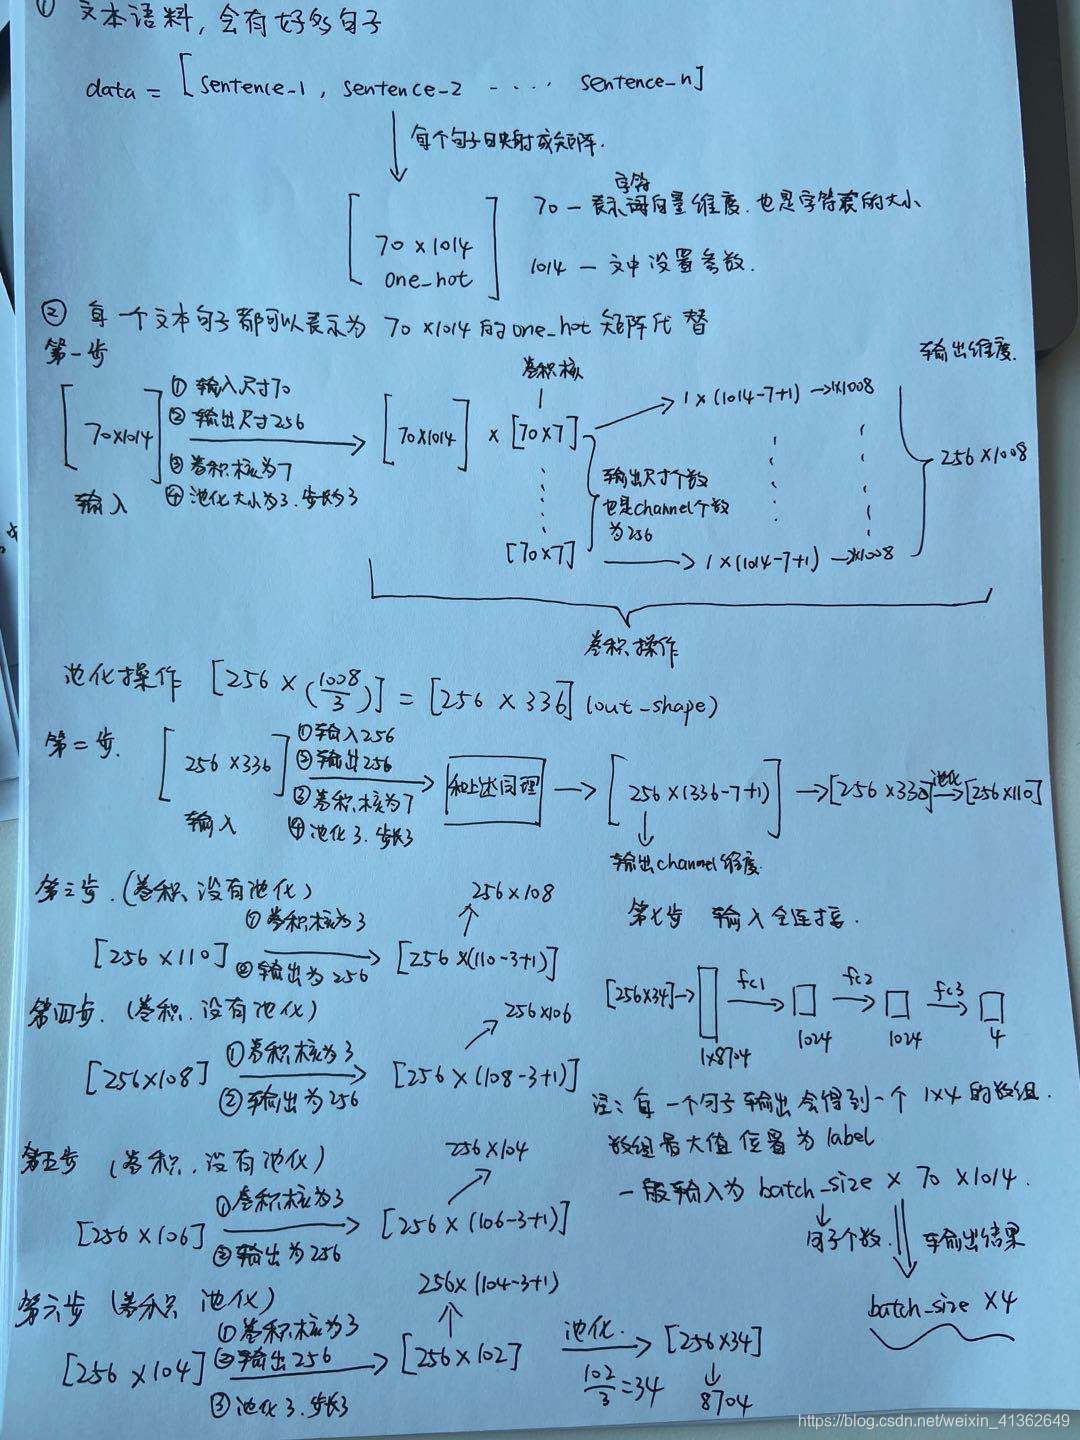 ① 文本语料，会有好多句子
data = [sentence-1, sentence-2 - .... sentence-n]
每个句子映射成矩阵.
字符
70 — 表示词向量维度.也是字符表的大小
[70 x 1014
one_hot]
1014 — 文中设置参数.
② 每一个文本句子都可以表示为 70 x1014 的one_hot 矩阵代替
第一步
[70x1014]
输入
① 输入尺寸70
② 输出尺寸256
③ 卷积核为7
④ 池化大小为3.步长为3
[70x1014] x [70x7]
卷积核
[70x7]
输出尺寸个数
也是channel个数
为256
1 x (1014-7+1) → 1x1008
1 x (1014-7+1) → 1x1008
输出维度.
256 x 1008
卷积操作
池化操作 [256 x (1008/3)] = [256 x 336] (out_shape)
第二步.
[256 x336]
输入
① 输入256
② 输出256
③ 卷积核为7
④ 池化3.步长3
和上述同理
→ [256 x(336-7+1)] → [256 x330] 池化→ [256x110]
输出channel维度.
第三步.(卷积.没有池化)
256 x 108
[256 x110]
① 卷积核为3
② 输出为256
[256 x(110-3+1)]
第四步. (卷积.没有池化)
256x106
[256x108]
① 卷积核为3
② 输出为256
[256 x (108-3+1)]
第五步 (卷积.没有池化)
256 x 104
[256 x 106]
① 卷积核为3
② 输出为256
[256 x (106-3+1)]
第六步 (卷积 池化)
256x (104-3+1)
[256 x 104]
① 卷积核为3
② 输出256
③ 池化3.步长3
[256 x 102]
池化.
102/3 = 34
[256 x34]
8704
第七步 输入全连接.
[256x34]→
1x8704
fc1
1024
fc2
1024
fc3
4
注: 每一个句子输出会得到一个 1x4 的数组.
数组最大值位置为label
一般输入为 batch_size x 70 x1014.
句子个数.
输出结果
batch_size x4
https://blog.csdn.net/weixin_41362649